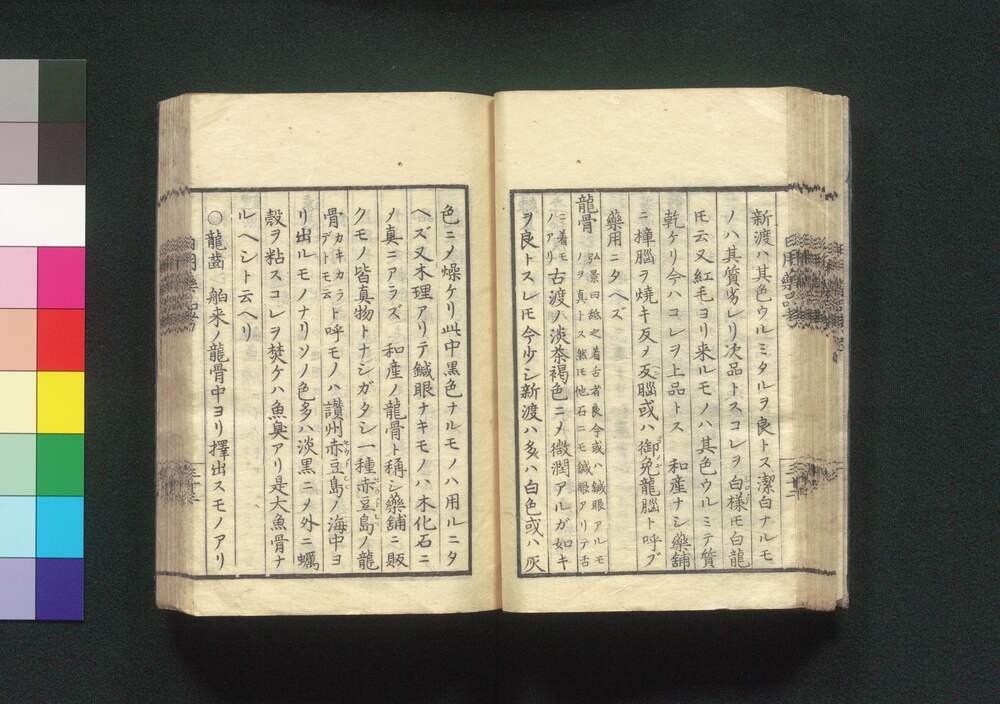 新渡ハ其色ウルミタルヲ良トス潔白ナルモ
ノハ其質劣レリ次品トスコレヲ白様モ白龍
𪜈云又紅毛ヨリ来ルモノハ其色ウルミテ質
乾ケリ今ハコレヲ上品トス 和産ナシ藥舗
ニ樟腦ヲ焼キ反メ反腦或ハ御免龍腦ト呼ブ
藥用ニタヘズ
龍骨 弘景曰䑛之着舌者良今或ハ鍼眼アルモ
ノヲ真トス然𪜈他石ニモ鍼眼アリテ舌
ニ着モ
ノアリ 古渡ハ淡茶褐色ニメ微潤アルガ如キ
ヲ良トスレ𪜈今少シ新渡ハ多ハ白色或ハ灰
色ニメ燥ケリ此中黒色ナルモノハ用ルニタ
ヘズ又木理アリテ鍼眼ナキモノハ木化石ニ
メ真ニアラズ 和産ノ龍骨ト稱シ藥舗ニ販
クモノ皆真物トナシガタシ一種赤豆島ノ龍
骨 カキカラ
デトモ云 ト呼モノハ讃州赤豆島ノ海中ヨ
リ出ルモノナリソノ色多ハ淡黒ニメ外ニ蠣
殻ヲ粘スコレヲ焚ケハ魚臭アリ是大魚骨ナ
ルヘシト云ヘリ
○龍齒 舶来ノ龍骨中ヨリ擇出スモノアリ